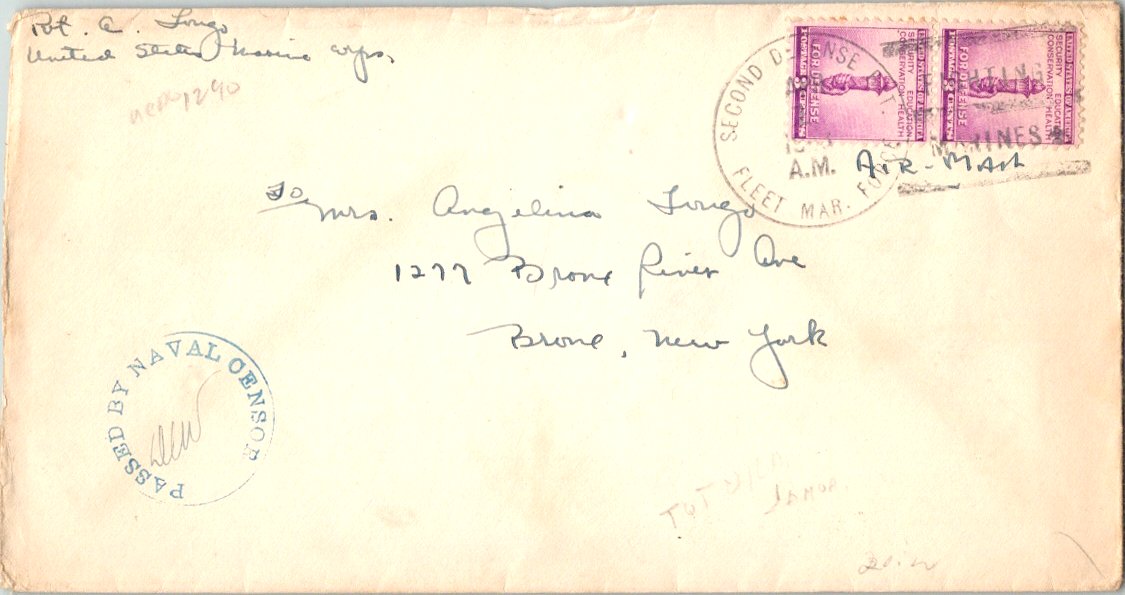 Pvt. A. Longo
United States Marine Corps.
1290
SECOND DEFENSE BAT.
FLEET MAR. FORCE
A.M.
MARINES
UNITED STATES OF AMERICA
SECURITY EDUCATION
CONSERVATION HEALTH
FOR DEFENSE
POSTAGE 3 CENTS
UNITED STATES OF AMERICA
SECURITY EDUCATION
CONSERVATION HEALTH
FOR DEFENSE
POSTAGE 3 CENTS
AIR-MAIL
To Mrs. Angelina Longo
1277 Bronx River Ave
Bronx, New York
PASSED BY NAVAL CENSOR